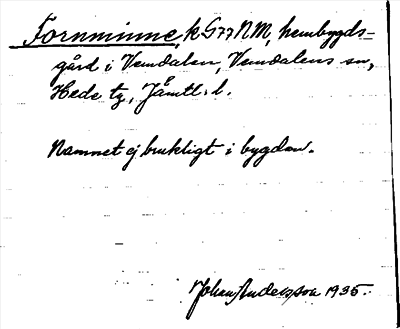 Fornminne, k G77NM, hembygds-
gård i Vemdalen, Vemdalens sn,
Hede tg, Jämtl. l.
Namnet ej brukligt i bygden.
Johan Andersson 1935.